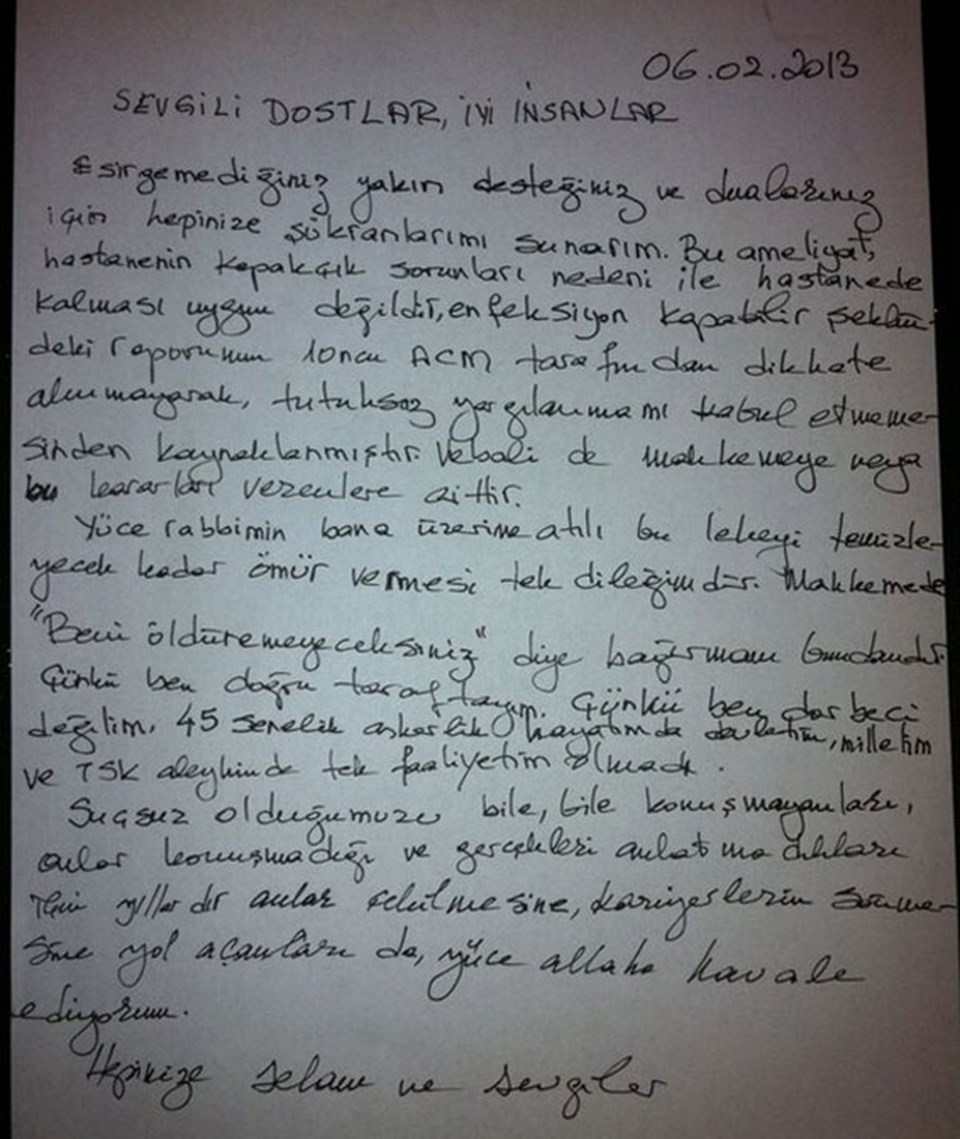 06.02.2013
SEVGİLİ DOSTLAR, İYİ İNSANLAR
Esirgemediğiniz yakın desteğiniz ve dualarınız
için hepinize şükranlarımı sunarım. Bu ameliyat,
hastanenin kapakçık sorunları nedeni ile hastanede
kalması uygun değildir, enfeksiyon kapabilir şeklin-
deki raporunun 10ncu ACM tarafından dikkate
alınmayarak, tutuksuz yargılanmamı kabul etmeme-
sinden kaynaklanmıştır. Vebali de mahkemeye veya
bu kararları verenlere aittir.
Yüce rabbimin bana üzerime atılı bu lekeyi temizle-
yecek kadar ömür vermesi tek dileğimdir. Mahkemede
"Beni öldüremeyeceksiniz" diye bağırmam bundandır.
Çünkü ben doğru taraftayım. Çünkü ben darbeci
değilim. 45 senelik askerlik hayatımda devletim, milletim
ve TSK aleyhinde tek faaliyetim olmadı.
Suçsuz olduğumuzu bile, bile konuşmayanları,
onlar konuşmadığı ve gerçekleri anlatmadıkları
için yıllardır acılar çekilmesine, kariyerlerin sönme-
sine yol açanları da, yüce allaha havale
ediyorum.
Hepinize selam ve sevgiler